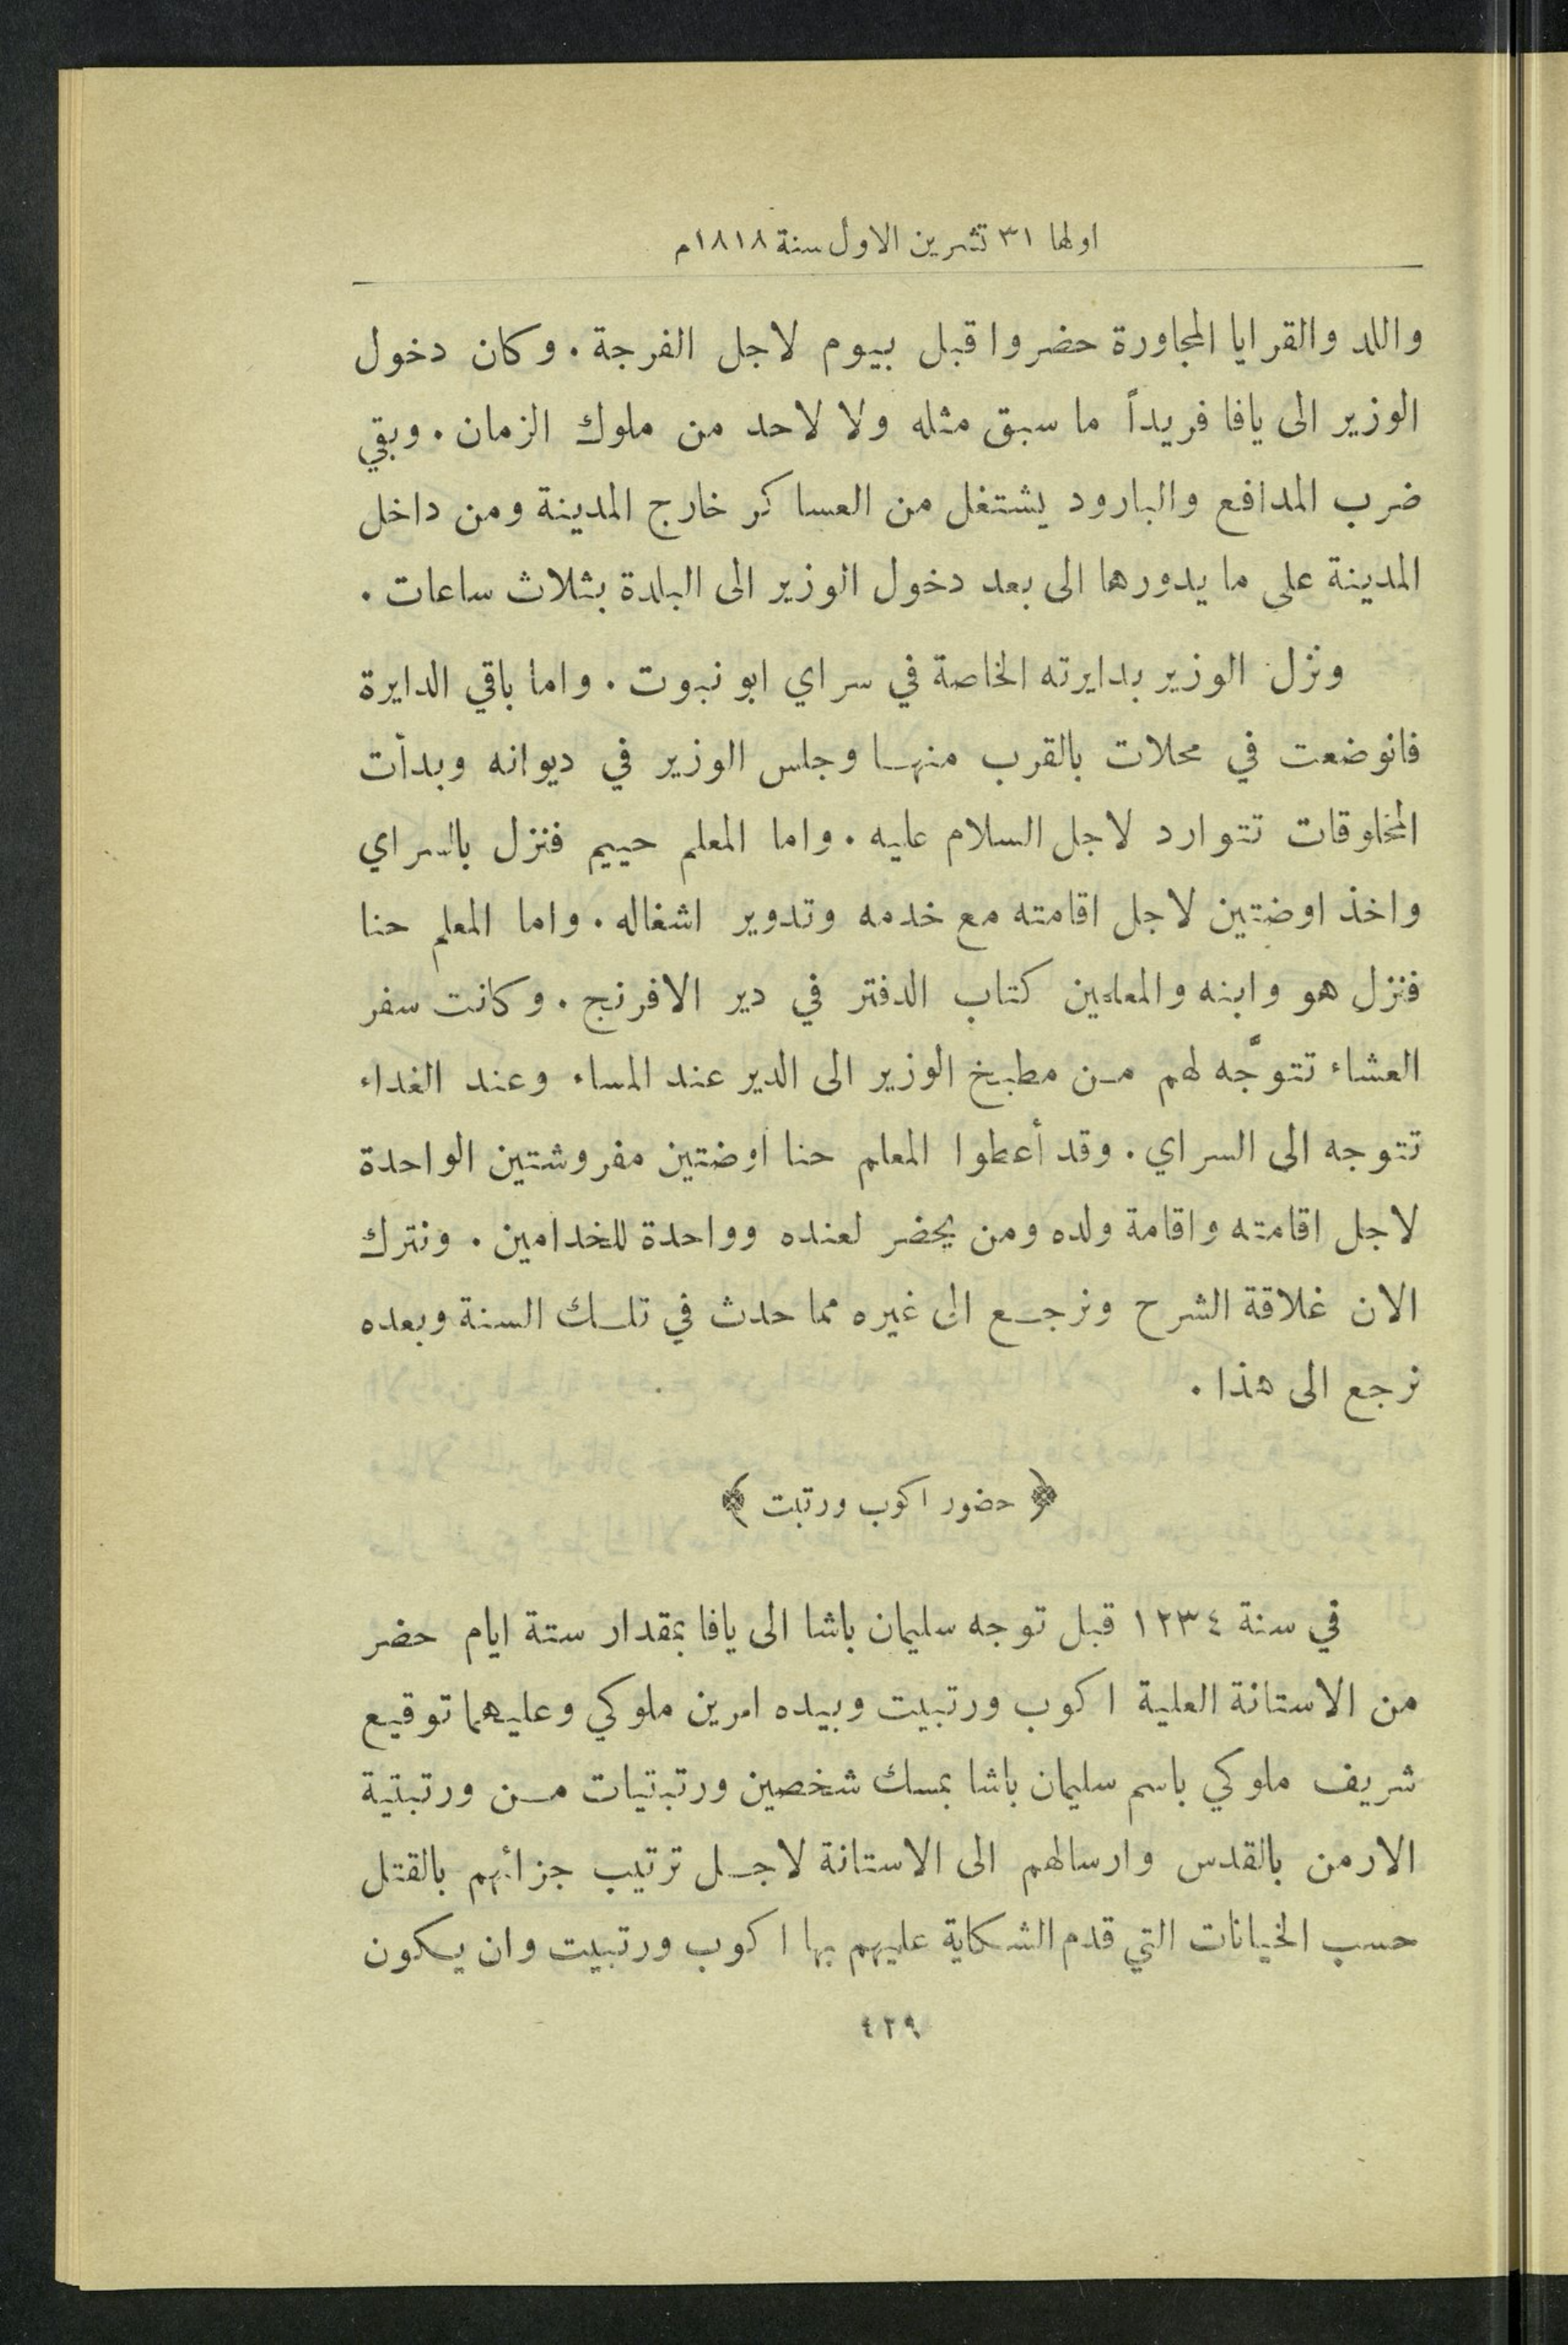 اولها ٣١ تشرين الاول سنة ١٨١٨م
واللد والقرايا المجاورة حضروا قبل بيوم لاجل الفرجة . وكان دخول
الوزير الى يافا فريداً ما سبق مثله ولا لاحد من ملوك الزمان . وبقي
ضرب المدافع والبارود يشتغل من العساكر خارج المدينة ومن داخل
المدينة على ما يدورها الى بعد دخول الوزير الى البلدة بثلاث ساعات .
ونزل الوزير بدايرته الخاصة في سراي ابو نبوت . واما باقي الدايرة
فانوضعت في محلات بالقرب منها وجلس الوزير في ديوانه وبدأت
المخلوقات تتوارد لاجل السلام عليه . واما المعلم حييم فنزل بالسراي
واخذ اوضتين لاجل اقامته مع خدمه وتدوير اشغاله . واما المعلم حنا
فنزل هو وابنه والمعلمين كتاب الدفتر في دير الافرنج . وكانت سفر
العشاء تتوجَّه لهم من مطبخ الوزير الى الدير عند المساء وعند الغداء
تتوجه الى السراي . وقد أعطوا المعلم حنا اوضتين مفروشتين الواحدة
لاجل اقامته واقامة ولده ومن يحضر لعنده وواحدة للخدامين . ونترك
الان غلاقة الشرح ونرجع الى غيره مما حدث في تلك السنة وبعده
نرجع الى هذا .
﴿ حضور اكوب ورتبت ﴾
في سنة ١٢٣٤ قبل توجه سليمان باشا الى يافا بمقدار ستة ايام حضر
من الاستانة العلية اكوب ورتبيت وبيده امرين ملوكي وعليهما توقيع
شريف ملوكي باسم سليمان باشا بمسك شخصين ورتبتيات من ورتبتية
الارمن بالقدس وارسالهم الى الاستانة لاجل ترتيب جزائهم بالقتل
حسب الخيانات التي قدم الشكاية عليهم بها اكوب ورتبيت وان يكون
٤٢٩